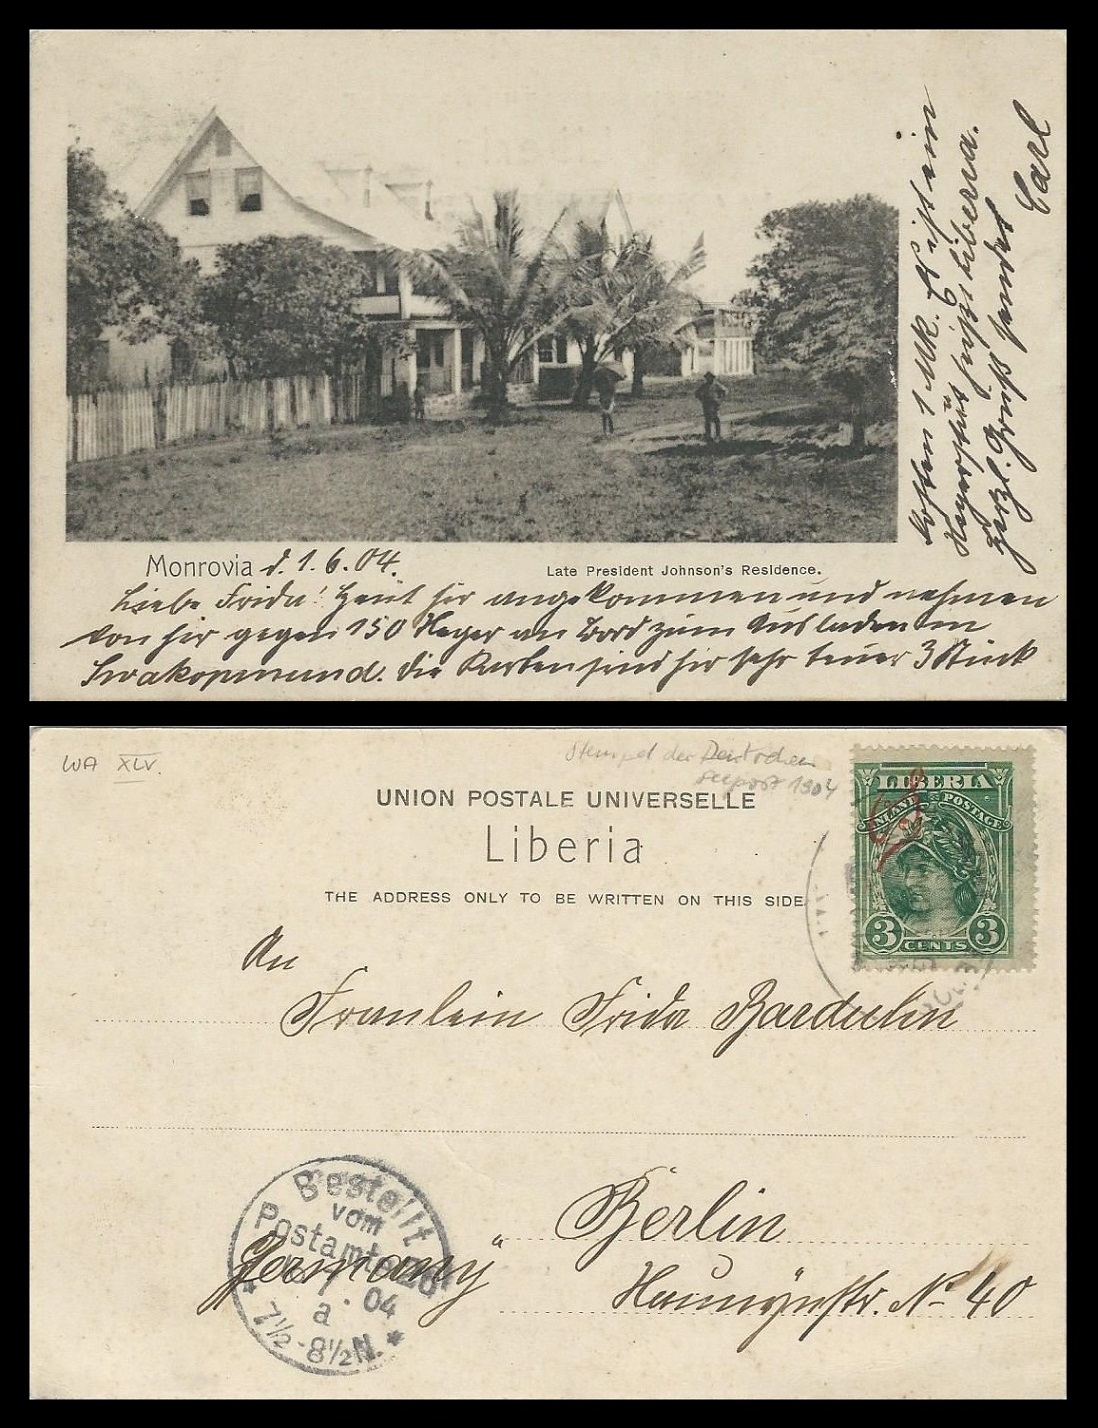 Monrovia d. 1.6.04.
Late President Johnson's Residence.
Liebe Frida! Heut hir angekommen und nehmen
von hir gegen 150 Neger an Bord zum Ausladen in
Swakopmund. Die Karten sind hir sehr teuer 3 Stück
kosten 1 Mk. Es ist ein
Liberia.
herzl. Gruß sendet
Carl
WA XLV.
Stempel der Deutschen
Seepost 1904
UNION POSTALE UNIVERSELLE
Liberia
THE ADDRESS ONLY TO BE WRITTEN ON THIS SIDE.
LIBERIA
INLAND POSTAGE
3 CENTS 3
An
Fraulein Frida Bardulin
Berlin
"Germany"
No 40
Bestellt
vom
Postamte
7. 04
a
7½-8½N.